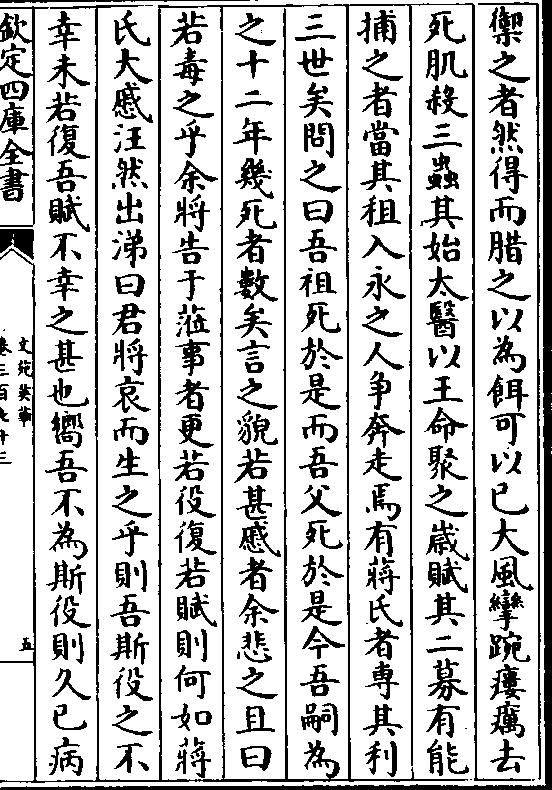 禦之者然得而腊之以為餌可以已大風攣踠瘻癘去
死肌殺三蟲其始太醫以王命聚之歲賦其二募有能
捕之者當其租入永之人争奔走焉有蔣氏者専其利
三世矣問之曰吾祖死於是而吾父死於是今吾嗣為
之十二年幾死者數矣言之貌若甚慼者余悲之且曰
若毒之乎余將告于蒞事者更若役復若賦則何如蔣
氏大慼汪然出涕曰君將哀而生之乎則吾斯役之不
幸未若復吾賦不幸之甚也嚮吾不為斯役則久已病
欽定四庫全書
文苑英華
卷三百七十三
五